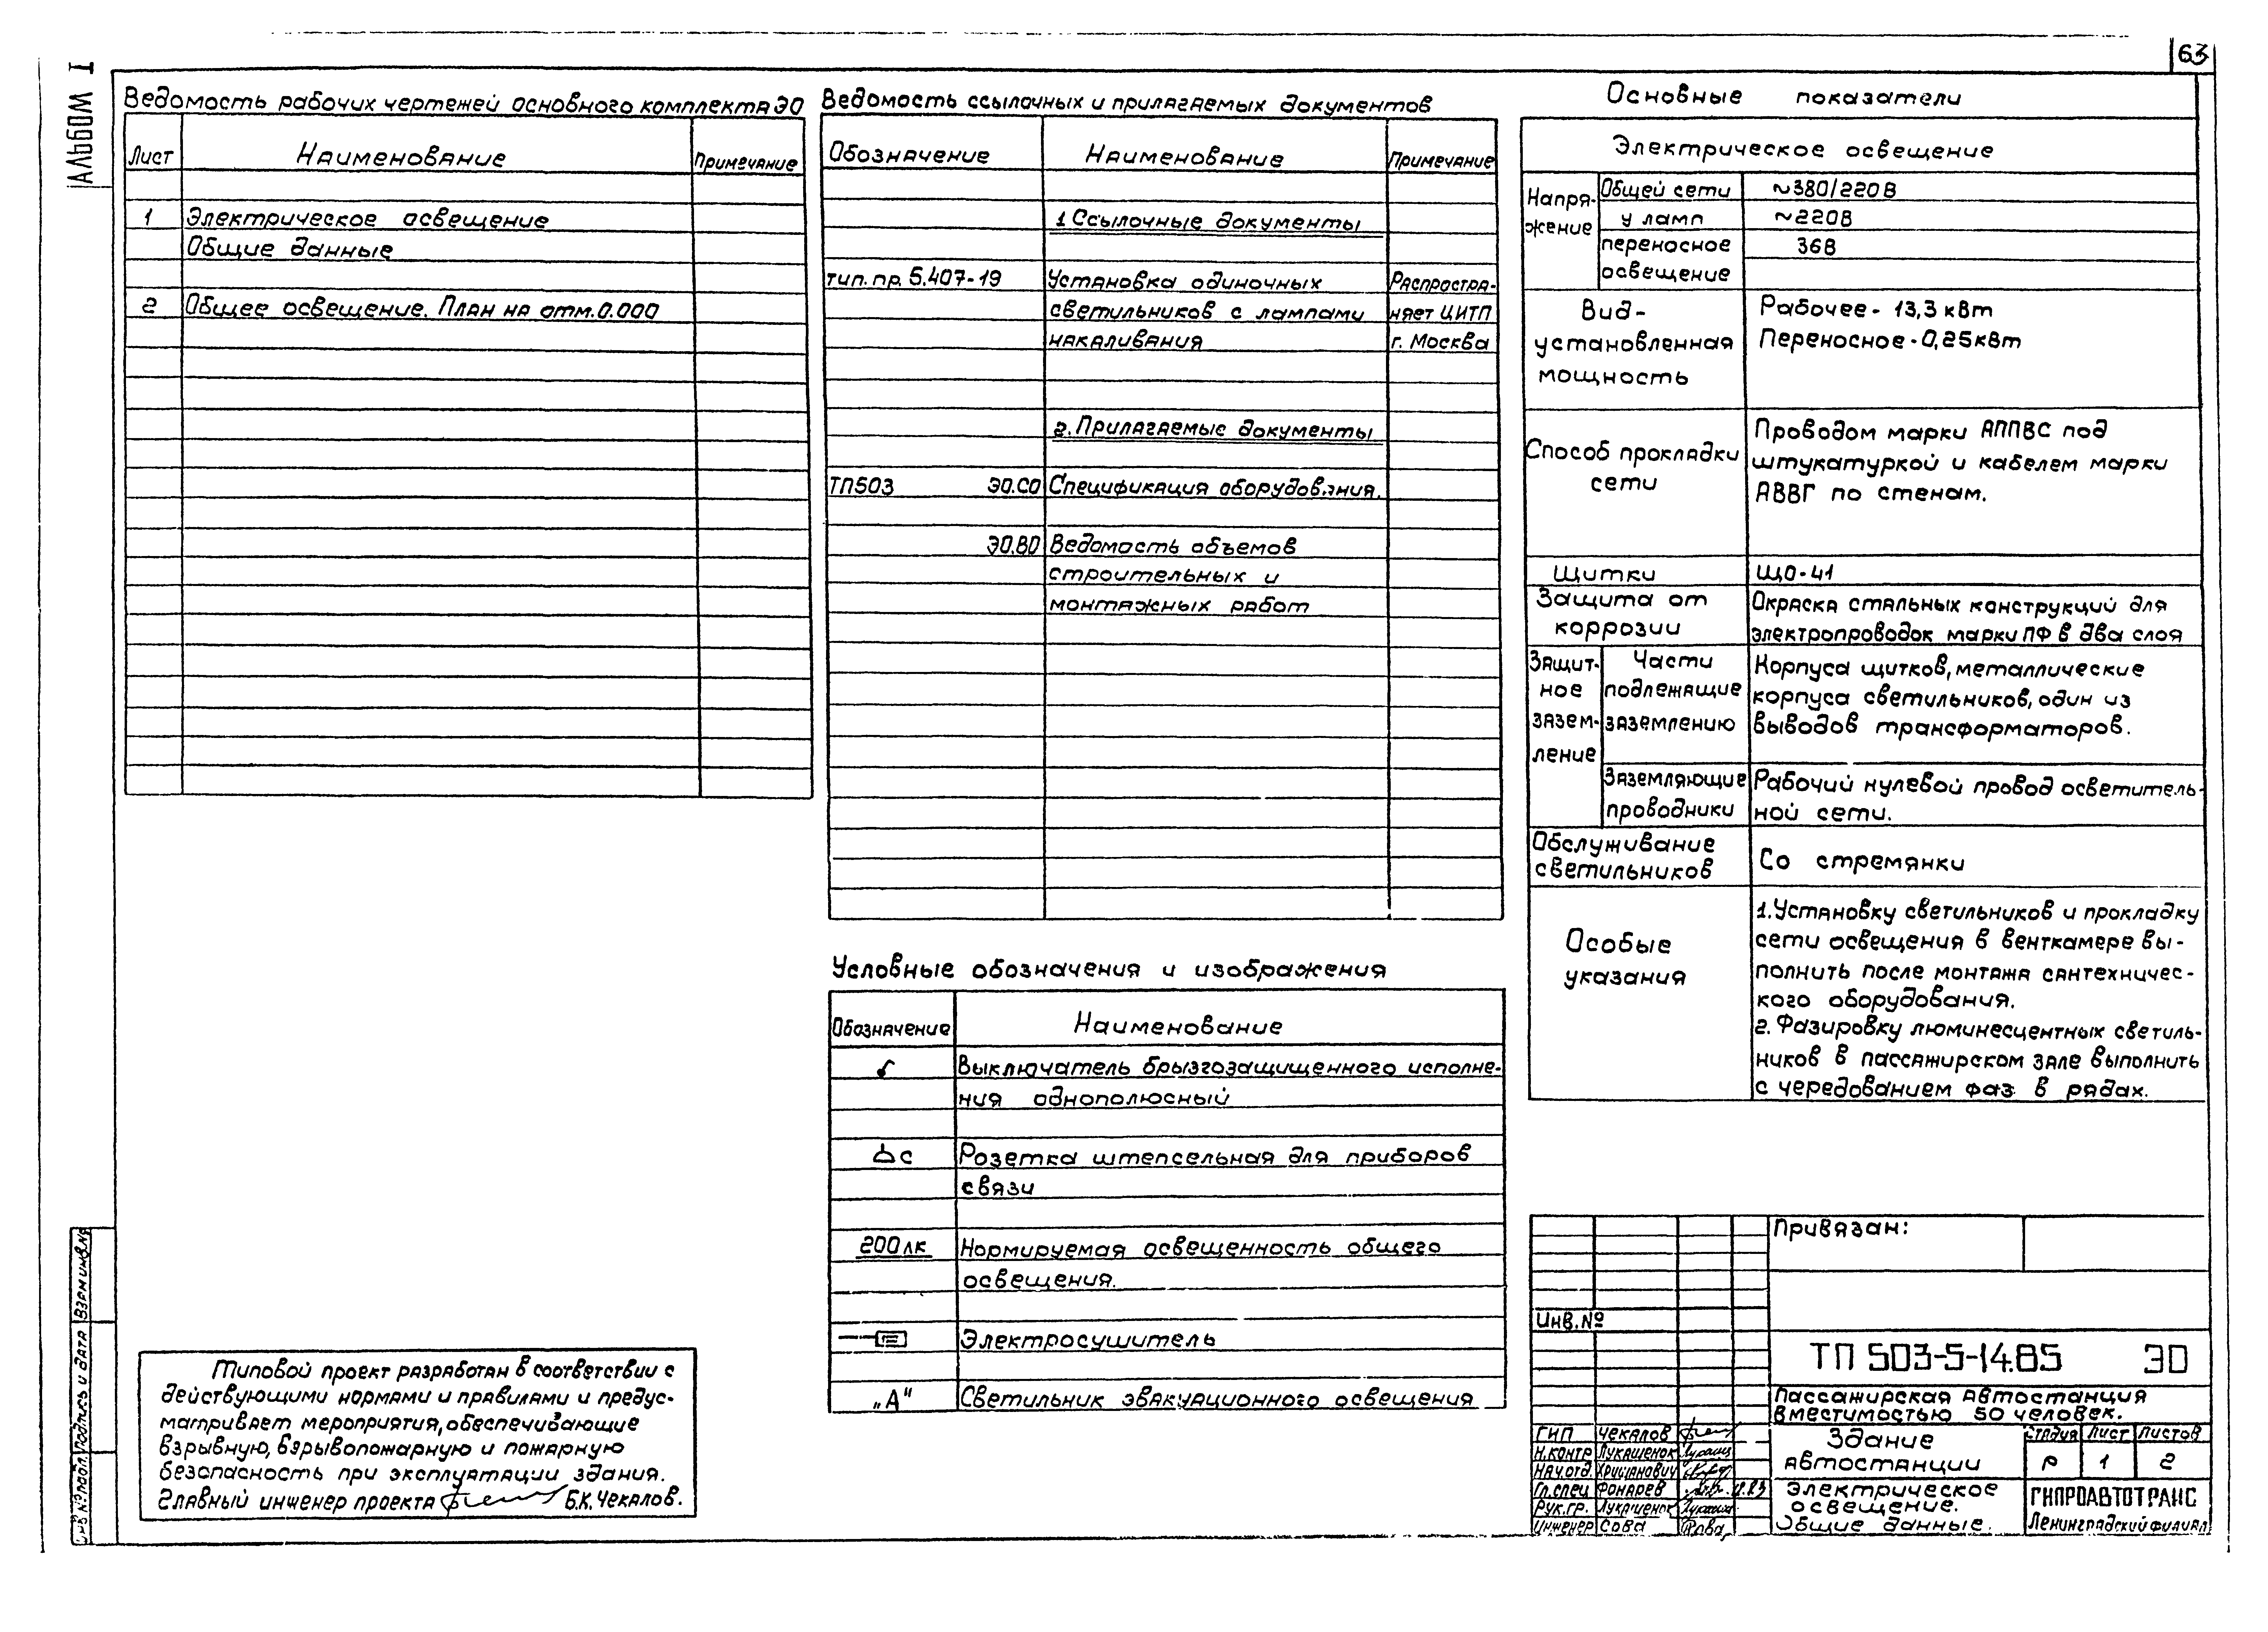 63
Альбом I
Ведомость рабочих чертежей основного комплекта ЭО
Лист Наименование Примечание
1 Электрическое освещение
Общие данные
2 Общее освещение. План на отм. 0.000
Ведомость ссылочных и прилагаемых документов
Обозначение Наименование Примечание
1 Ссылочные документы
тип. пр. 5.407-19 Установка одиночных Распростра-
светильников с лампами няет ЦИТП
накаливания г. Москва
2. Прилагаемые документы
ТП503 ЭО.СО Спецификация оборудования.
ЭО.ВО Ведомость объемов
строительных и
монтажных работ
Условные обозначения и изображения
Обозначение Наименование
Выключатель брызгозащищенного исполне-
ния однополюсный
С Розетка штепсельная для приборов
связи
200лк Нормируемая освещенность общего
освещения.
Электросушитель
„А" Светильник эвакуационного освещения
Основные показатели
Электрическое освещение
Напря-
жение
Общей сети ~380/220В
у ламп ~220В
переносное 36В
освещение
Вид- Рабочее - 13,3 кВт
установленная Переносное - 0,25кВт
мощность
Способ прокладки
сети
Проводом марки АППВС под
штукатуркой и кабелем марки
АВВГ по стенам.
Щитки ЩО-41
Защита от
коррозии
Окраска стальных конструкций для
электропроводок марки ПФ в два слоя
Защит-
ное
зазем-
ление
Части
подлежащие
заземлению
Корпуса щитков, металлические
корпуса светильников, один из
выводов трансформаторов.
Заземляющие
проводники
Рабочий нулевой провод осветитель-
ной сети.
Обслуживание
светильников
Со стремянки
Особые
указания
1. Установку светильников и прокладку
сети освещения в венткамере вы-
полнить после монтажа сантехничес-
кого оборудования.
2. Фазировку люминесцентных светиль-
ников в пассажирском зале выполнить
с чередованием фаз в рядах.
Типовой проект разработан в соответствии с
действующими нормами и правилами и предус-
матривает мероприятия, обеспечивающие
взрывную, взрывопожарную и пожарную
безопасность при эксплуатации здания.
Главный инженер проекта Б.К. Чекалов.
Инв. № подл. Подпись и дата Взам инв. №
Привязан:
Инв. №
ТП 503-5-14.85 ЭО
Пассажирская автостанция
вместимостью 50 человек.
ГИП Чекалов
Н.контр Лукашенок
Нач.отд. Хришанович
Гл.спец Фонарев
Рук.гр. Лукашенок
Инженер Сова
Здание
автостанции
Стадия Лист Листов
Р 1 2
Электрическое
освещение.
Общие данные.
ГИПРОАВТОТРАНС
Ленинградский филиал